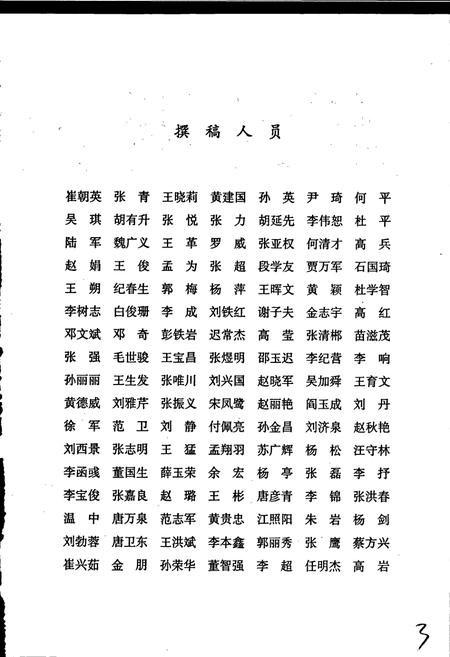 撰稿人员
崔朝英 张青 王晓莉 黄建国 孙英 尹琦 何平
吴琪 胡有升 张悦 张力 胡延先 李伟恕 杜平
陆军 魏广义 王革 罗威 张亚权 何清才 高兵
赵娟 王俊 孟为 张超 段学友 贾万军 石国琦
王朔 纪春生 郭梅 杨萍 王晖文 黄颖 杜学智
李树志 白俊珊 李成 刘铁红 谢子夫 金志宇 高红
邓文斌 邓奇 彭铁岩 迟常杰 高莹 张清郴 苗滋茂
张强 毛世骏 王宝昌 张煜明 邵玉迟 李纪营 李响
孙丽丽 王生发 张唯川 刘兴国 赵晓军 吴加舜 王育文
黄德威 刘雅芹 张振义 宋凤鹭 赵丽艳 阎玉成 刘丹
徐军 范卫 刘静 付佩亮 孙金昌 刘济泉 赵秋艳
刘西景 张志明 王猛 孟翔羽 苏广辉 杨松 汪守林
李函彧 董国生 薛玉荣 余宏 杨亭 张磊 李抒
李宝俊 张嘉良 赵璐 王彬 唐彦青 李锦 张洪春
温中 唐万泉 范志军 黄贵忠 江照阳 朱岩 杨剑
刘勃蓉 唐卫东 王洪斌 李本鑫 郭丽秀 张鹰 蔡方兴
崔兴茹 金朋 孙荣华 董智强 李超 任明杰 高岩
3